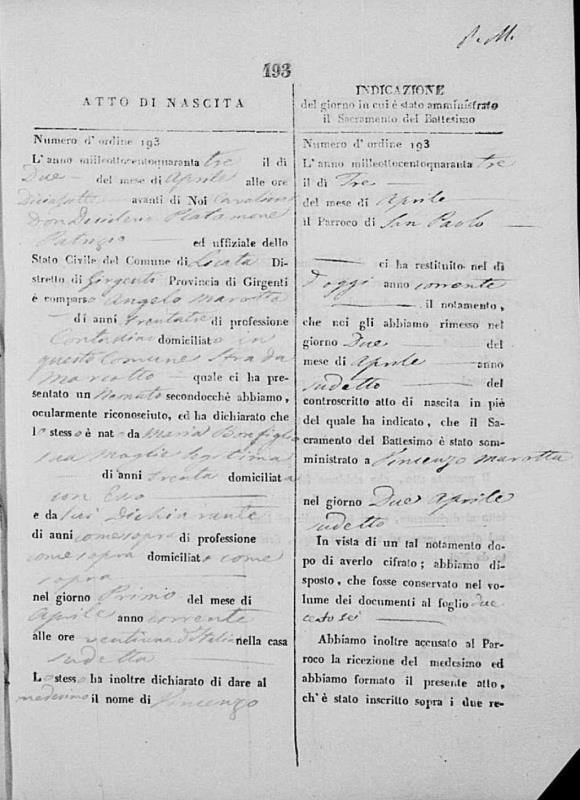 P. M.
193
ATTO DI NASCITA
Numero d' ordine 193
L' anno milleottocentoquaranta tre il dì
Due del mese di Aprile alle ore
Diciasette avanti di Noi Cavaliere
Don Desiderio Platamone
Patrizio ed uffiziale dello
Stato Civile del Comune di Licata Di-
stretto di Girgenti Provincia di Girgenti
è comparso Angelo Marotta
di anni trentatre di professione
Contadino domiciliato in
questo Comune Strada
Marotto quale ci ha pre-
sentato un Neonato secondocchè abbiamo,
ocularmente riconosciuto, ed ha dichiarato che
lo stesso è nato da Maria Bonfiglio
sua moglie legittima
di anni trenta domiciliata
con Esso
e da lui Dichiarante
di anni come sopra di professione
come sopra domiciliato come
sopra
nel giorno Primo del mese di
Aprile anno corrente
alle ore ventiuna d'Italia nella casa
sudetta
Lo stesso ha inoltre dichiarato di dare al
medesimo il nome di Vincenzo
INDICAZIONE
del giorno in cui è stato amministrato
il Sacramento del Battesimo
Numero d' ordine 193
L' anno milleottocentoquaranta tre
il dì Tre
del mese di Aprile
il Parroco di San Paolo
ci ha restituito nel dì
d'oggi anno corrente
il notamento,
che noi gli abbiamo rimesso nel
giorno Due del
mese di Aprile anno
sudetto del
controscritto atto di nascita in piè
del quale ha indicato, che il Sa-
cramento del Battesimo è stato som-
ministrato a Vincenzo Marotta
nel giorno Due Aprile
sudetto
In vista di un tal notamento do-
po di averlo cifrato; abbiamo di-
sposto, che fosse conservato nel vo-
lume dei documenti al foglio due
cento sei
Abbiamo inoltre accusato al Par-
roco la ricezione del medesimo ed
abbiamo formato il presente atto,
ch' è stato inscritto sopra i due re-